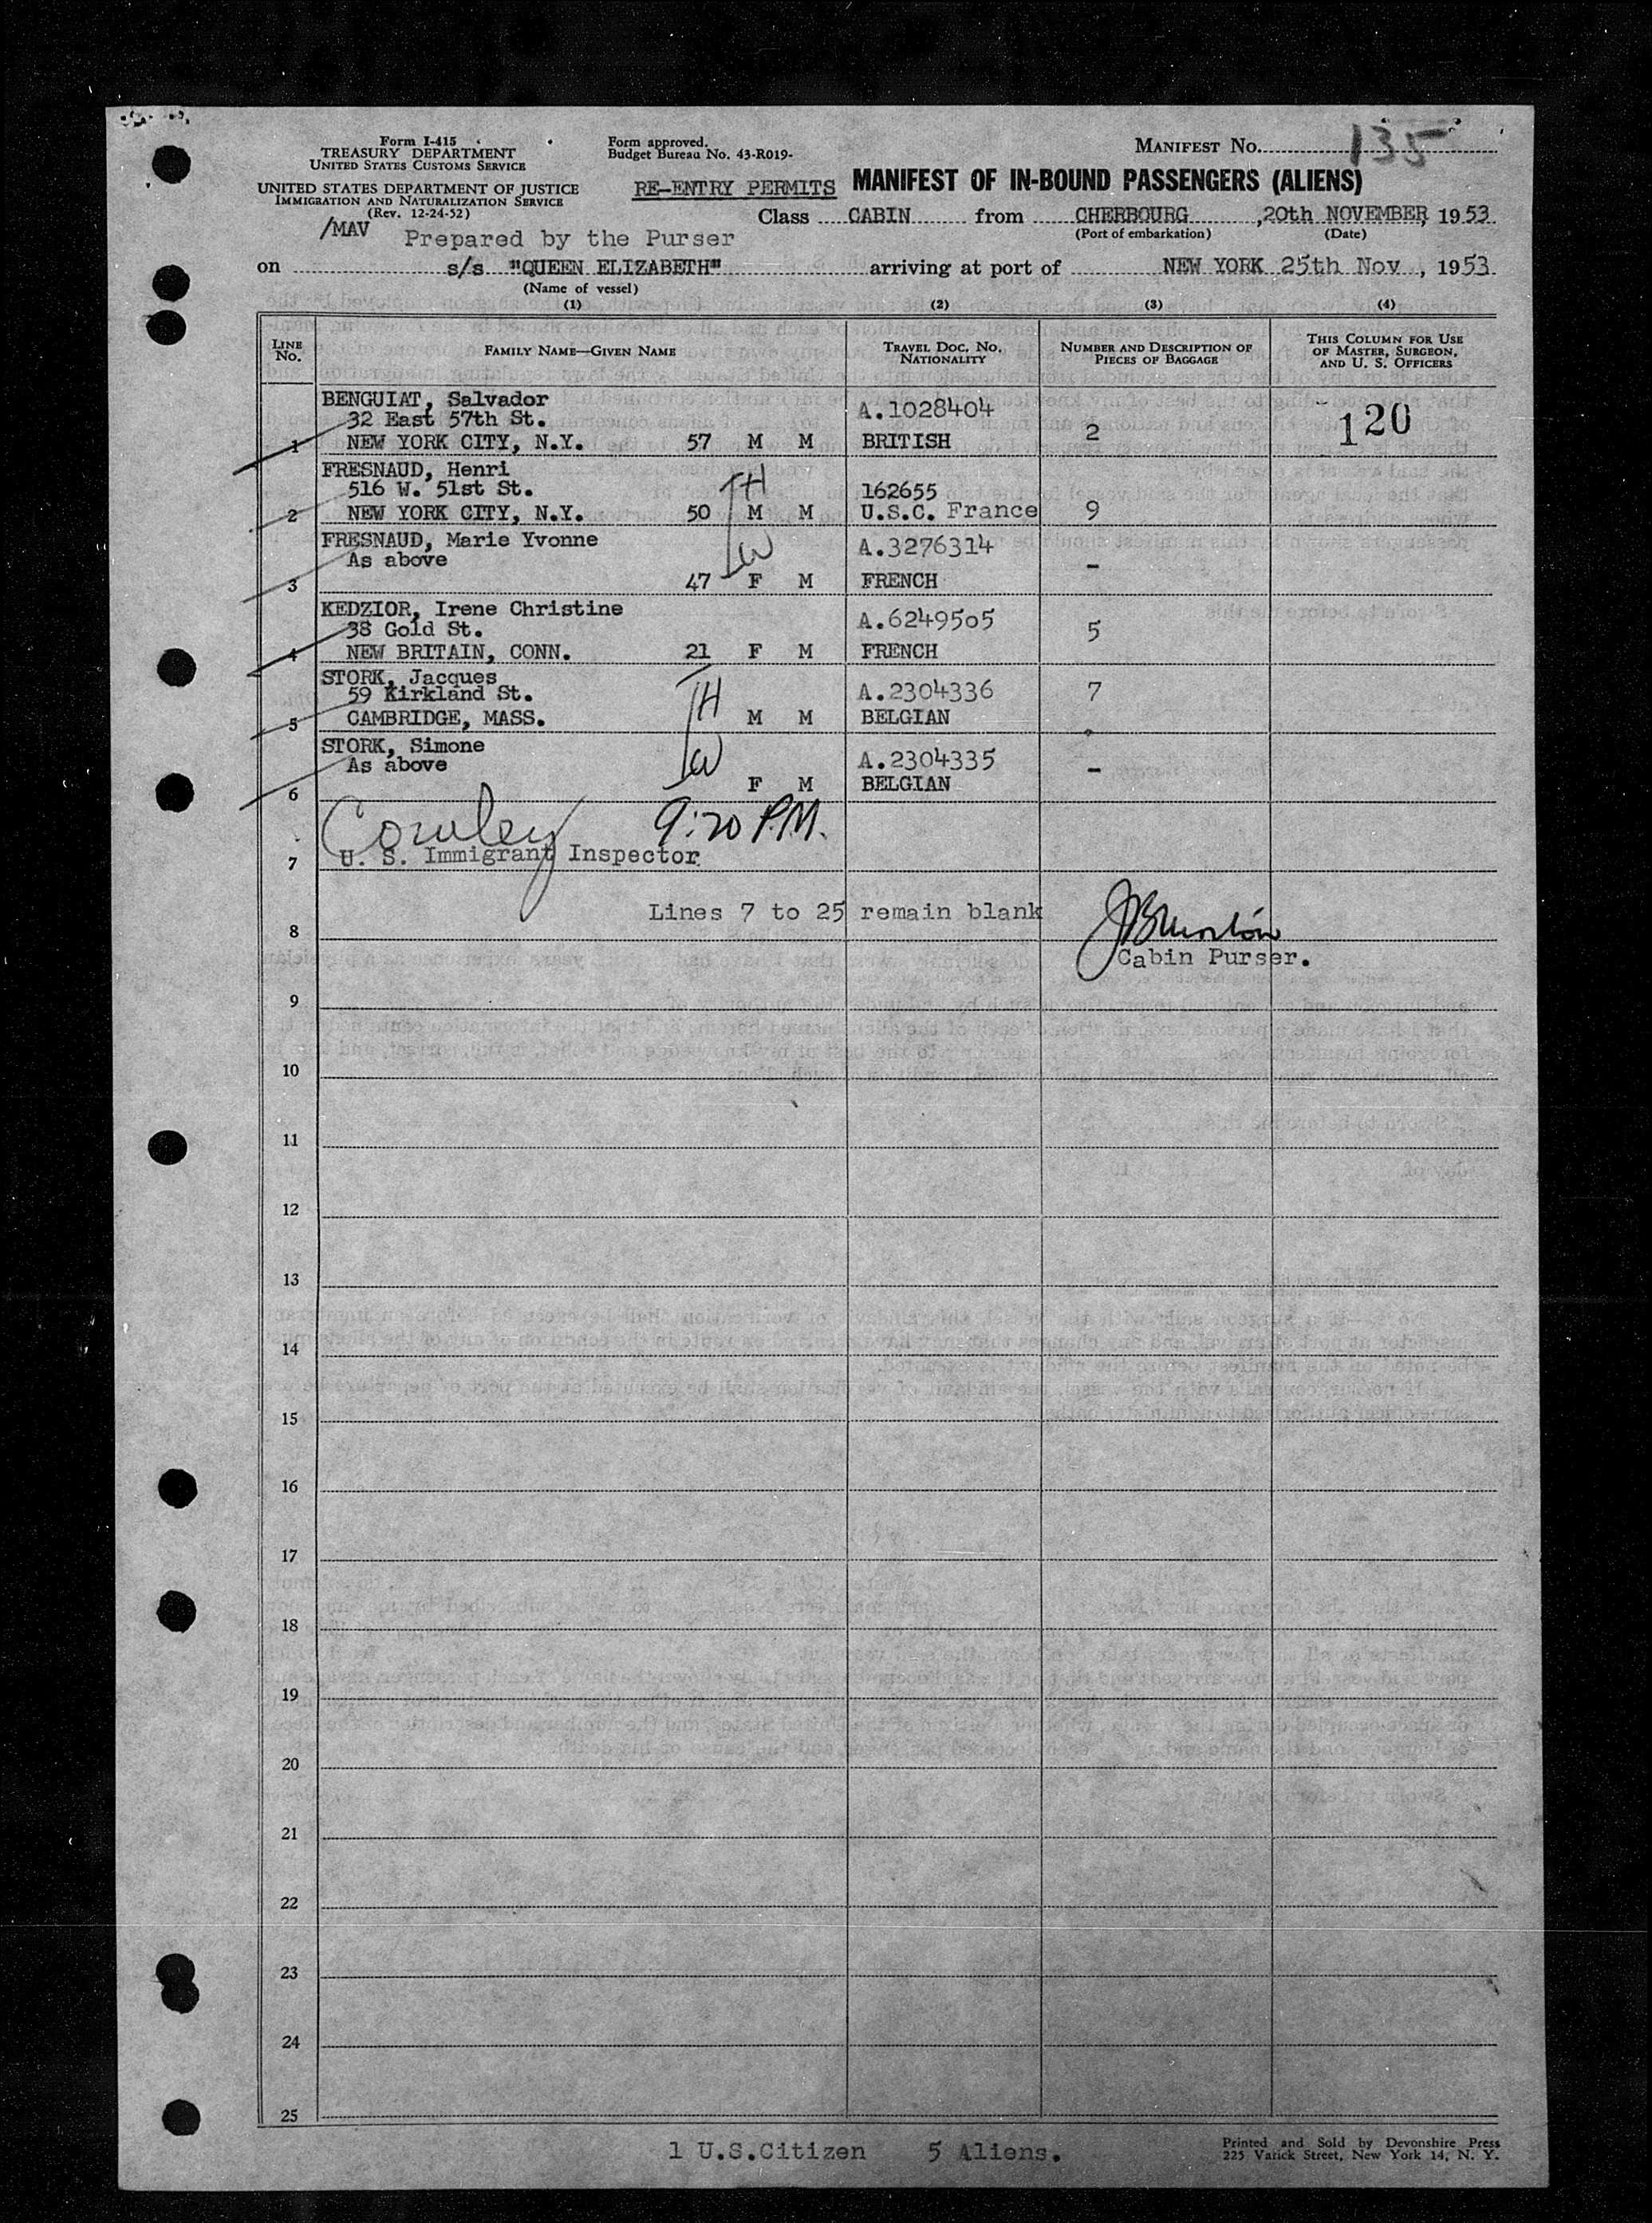 Form I-415
TREASURY DEPARTMENT
UNITED STATES CUSTOMS SERVICE
UNITED STATES DEPARTMENT OF JUSTICE
IMMIGRATION AND NATURALIZATION SERVICE
(Rev. 12-24-52)
Form approved.
Budget Bureau No. 43-R019-
MANIFEST NO. 135
RE-ENTRY PERMITS MANIFEST OF IN-BOUND PASSENGERS (ALIENS)
Class CABIN from CHERBOURG, 20th NOVEMBER, 1953
(Port of embarkation) (Date)
/MAV Prepared by the Purser
on s/s "QUEEN ELIZABETH" arriving at port of NEW YORK 25th Nov, 1953
(Name of vessel)
(1) (2) (3) (4)
LINE No. FAMILY NAME—GIVEN NAME TRAVEL DOC. NO. NATIONALITY NUMBER AND DESCRIPTION OF PIECES OF BAGGAGE THIS COLUMN FOR USE OF MASTER, SURGEON, AND U. S. OFFICERS
BENGUIAT, Salvador
32 East 57th St. A.1028404 120
1 NEW YORK CITY, N.Y. 57 M M BRITISH 2
FRESNAUD, Henri
516 W. 51st St. TH 162655
2 NEW YORK CITY, N.Y. 50 M M U.S.C. France 9
FRESNAUD, Marie Yvonne A.3276314
As above W -
3 47 F M FRENCH
KEDZIOR, Irene Christine
38 Gold St. A.6249505 5
4 NEW BRITAIN, CONN. 21 F M FRENCH
STORK, Jacques
59 Kirkland St. TH A.2304336 7
5 CAMBRIDGE, MASS. M M BELGIAN
STORK, Simone
As above W A.2304335 -
6 F M BELGIAN
Cowley 9:20 P.M.
7 U. S. Immigrant Inspector
Lines 7 to 25 remain blank
8
Cabin Purser.
9
10
11
12
13
14
15
16
17
18
19
20
21
22
23
24
25
1 U.S.Citizen 5 Aliens.
Printed and Sold by Devonshire Press
225 Varick Street, New York 14, N. Y.